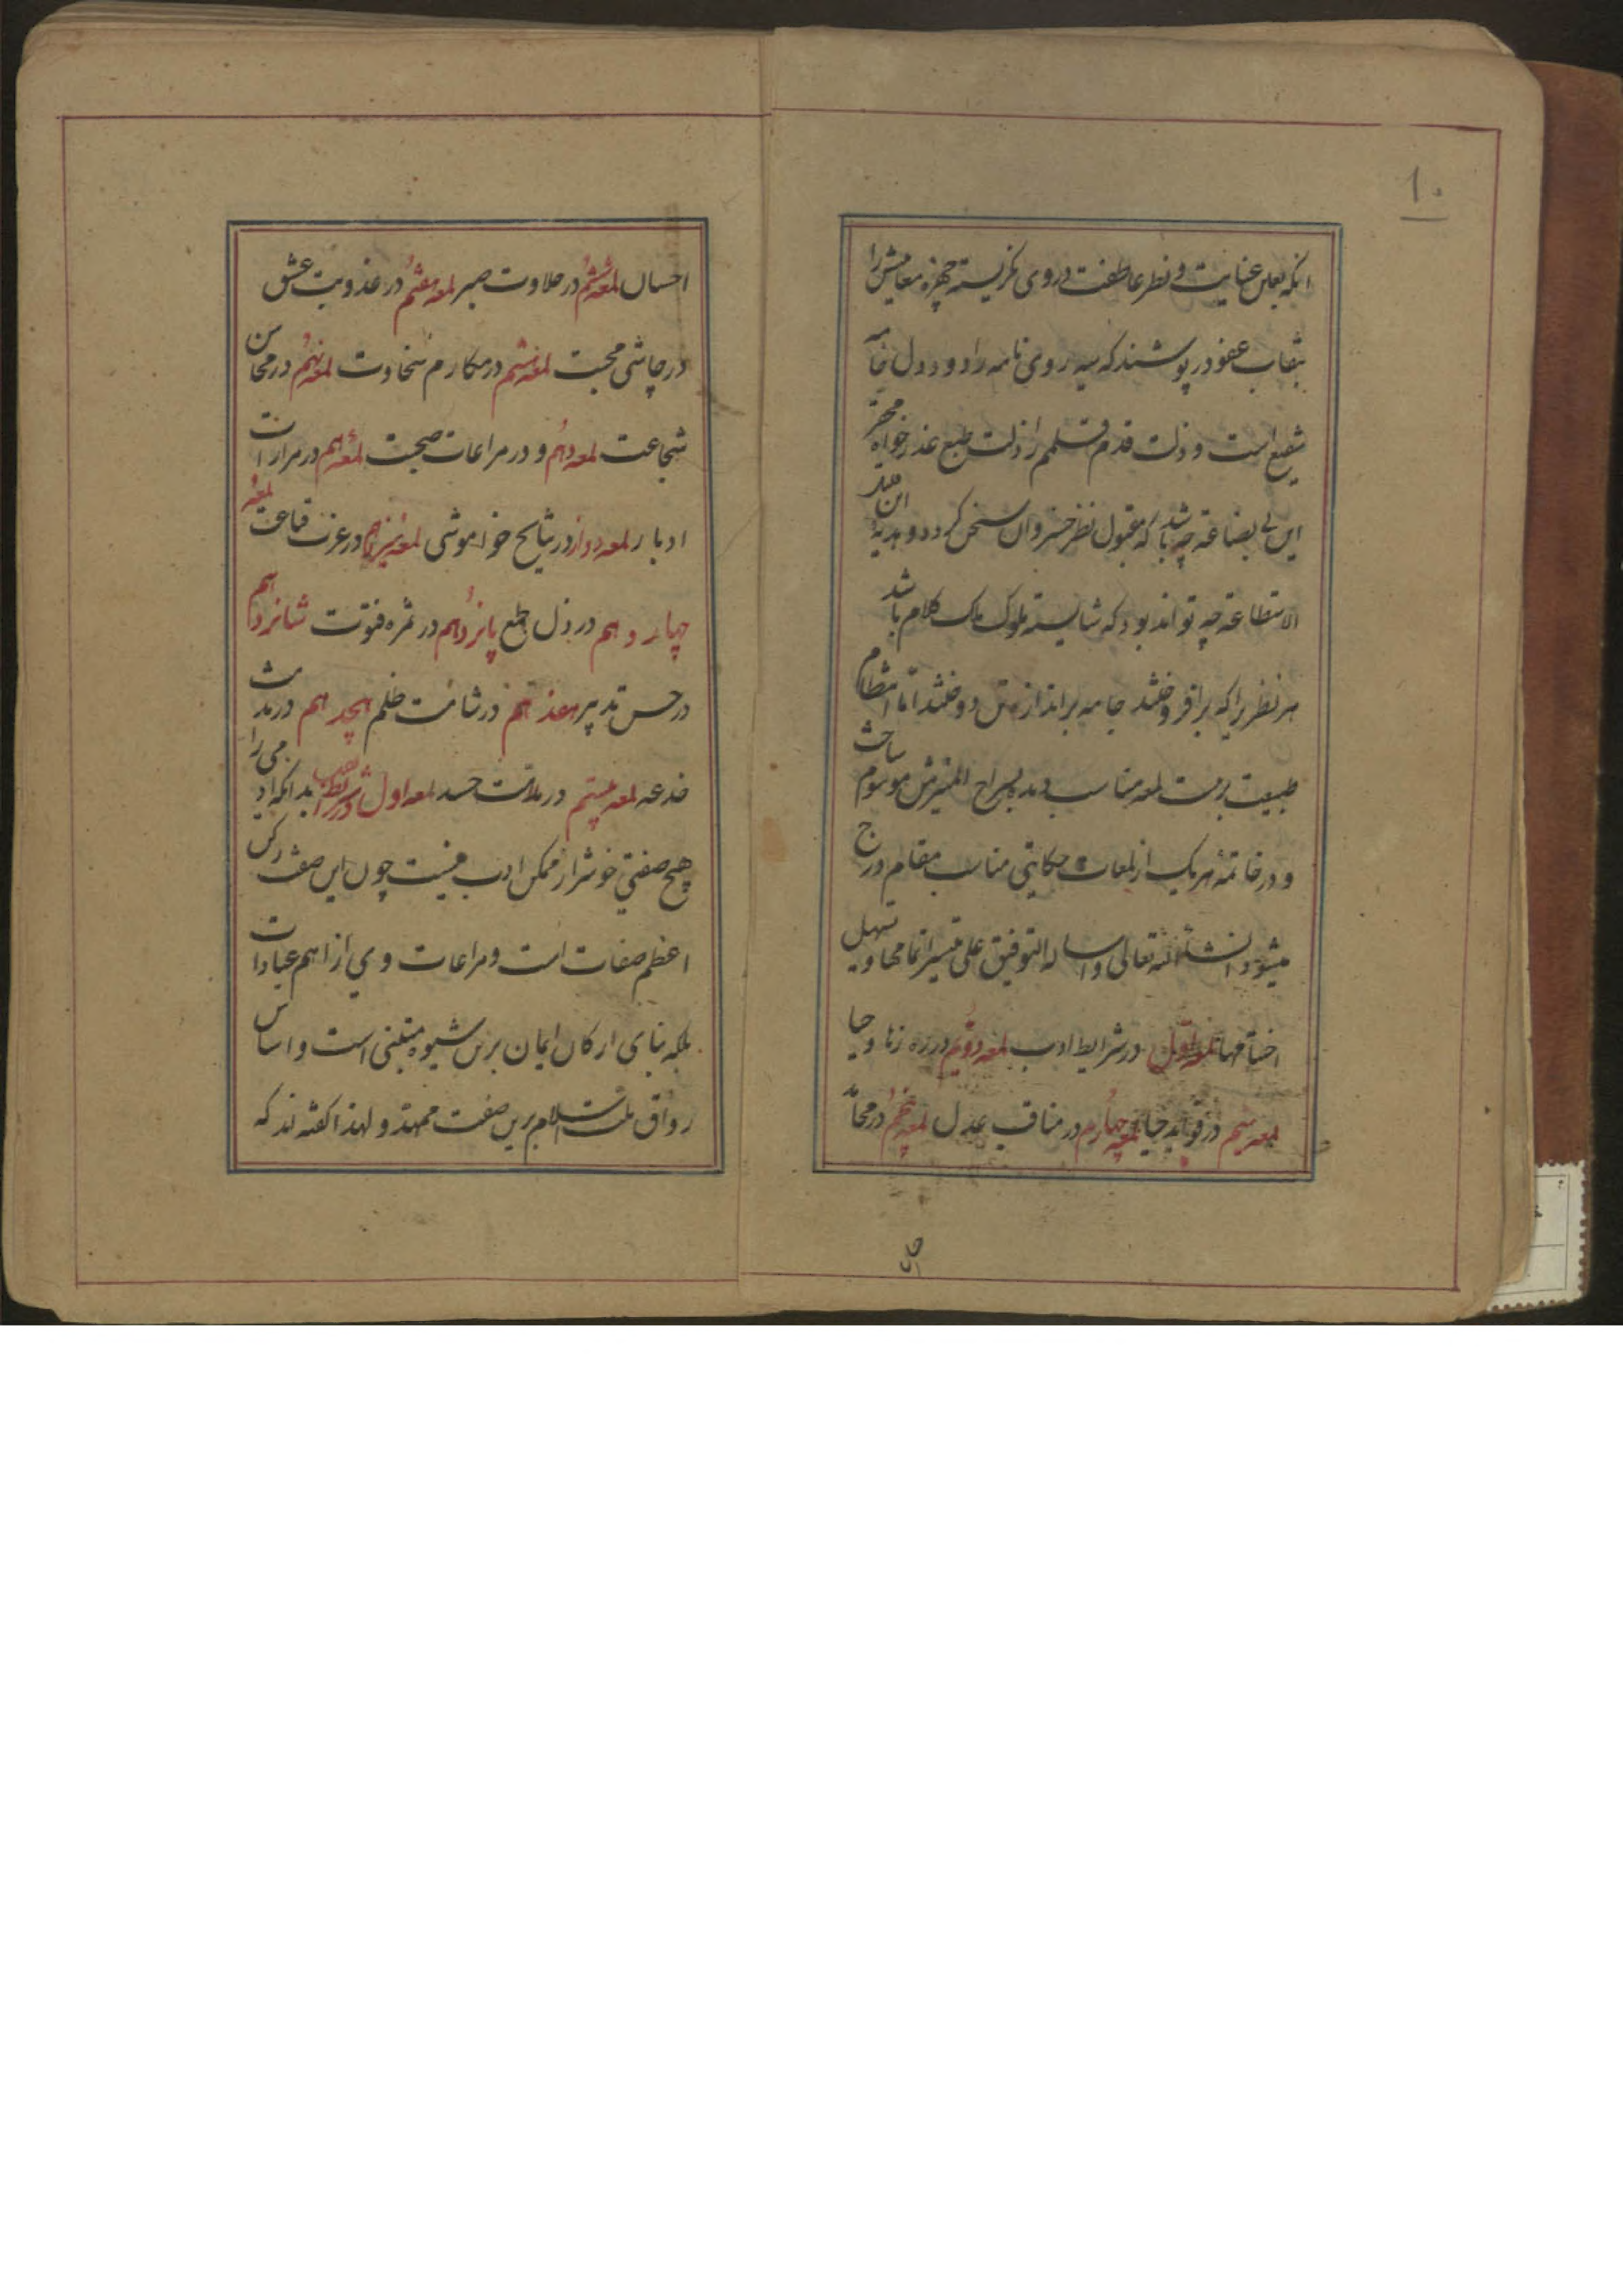 ۱۰
انکه بعین عنایت و نظر عاطفت در وی نکریسته چهره معایبش را
بنقاب عفو در پوشند که سیه روی نامه را دود دل خامه
شفیع است و ذلت قدم قلم را ذلت طبع عذر خواه محقر
این بی بضاعة چه باشد که مقبول نظر خسروان سخن کردد و هدیهٔ این عدیم
الاستطاعة چه تواند بود که شایسته ملوک ملک کلام باشد
هر نظر را که بر افروختند جامه بر اندازه تن دوختند اما انتظام
طبیعت بیست لمعه مناسب دید بسراج المنیرش موسوم ساخت
و در خاتمهٔ هر یک از لمعات حکایتی مناسب مقام درج
میشود انشاءالله تعالی و اساله التوفیق علی تیسیر اتمامها و تسهیل
اختتامها لمعه اول در شرایط ادب لمعه دویم در
لمعه سیم در فواید حیا لمعه چهارم در مناقب عدل لمعه پنجم در محامد
احسان لمعه ششم در حلاوت صبر لمعه هفتم در عذوبت عشق
در چاشنی محبت لمعه هشتم در مکارم سخاوت لمعه نهم در محاسن
شجاعت لمعه دهم و در مراعات صحبت لمعه در مرارات
ادبار لمعه دوازد در نتایج خواموشی لمعه سیزدهم در عزت قناعت لمعه
چهاردهم در ذل طمع پانزدهم در ثمره فتوت شانزدهم
در حسن تدبیر هفدهم در شامت ظلم هجدهم در مذمت
خدعه لمعه بیستم در ملامت حسد لمعه اول در شرایط ادب بدانکه ادمی را
هیچ صفتی خوشتر از ممکن ادب نیست چون این صفت رکن
اعظم صفات است و مراعات وی از اهم عبادات
بلکه بنای ارکان ایمان برین شیوه مبتنی است و اساس
رواق ملت اسلام برین صفت ممهد و لهذا کفته اند که